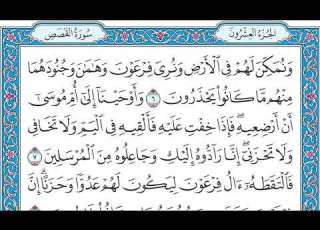 الجزء العشرون سورة القصص
وَنُمَكِّنَ لَهُمْ فِي ٱلْأَرْضِ وَنُرِيَ فِرْعَوْنَ وَهَٰمَٰنَ وَجُنُودَهُمَا
مِنْهُم مَّا كَانُوا۟ يَحْذَرُونَ ٦ وَأَوْحَيْنَآ إِلَىٰٓ أُمِّ مُوسَىٰٓ
أَنْ أَرْضِعِيهِ ۖ فَإِذَا خِفْتِ عَلَيْهِ فَأَلْقِيهِ فِي ٱلْيَمِّ وَلَا تَخَافِي
وَلَا تَحْزَنِيٓ ۖ إِنَّا رَآدُّوهُ إِلَيْكِ وَجَاعِلُوهُ مِنَ ٱلْمُرْسَلِينَ ٧
فَٱلْتَقَطَهُۥٓ ءَالُ فِرْعَوْنَ لِيَكُونَ لَهُمْ عَدُوًّا وَحَزَنًا ۗ إِنَّ